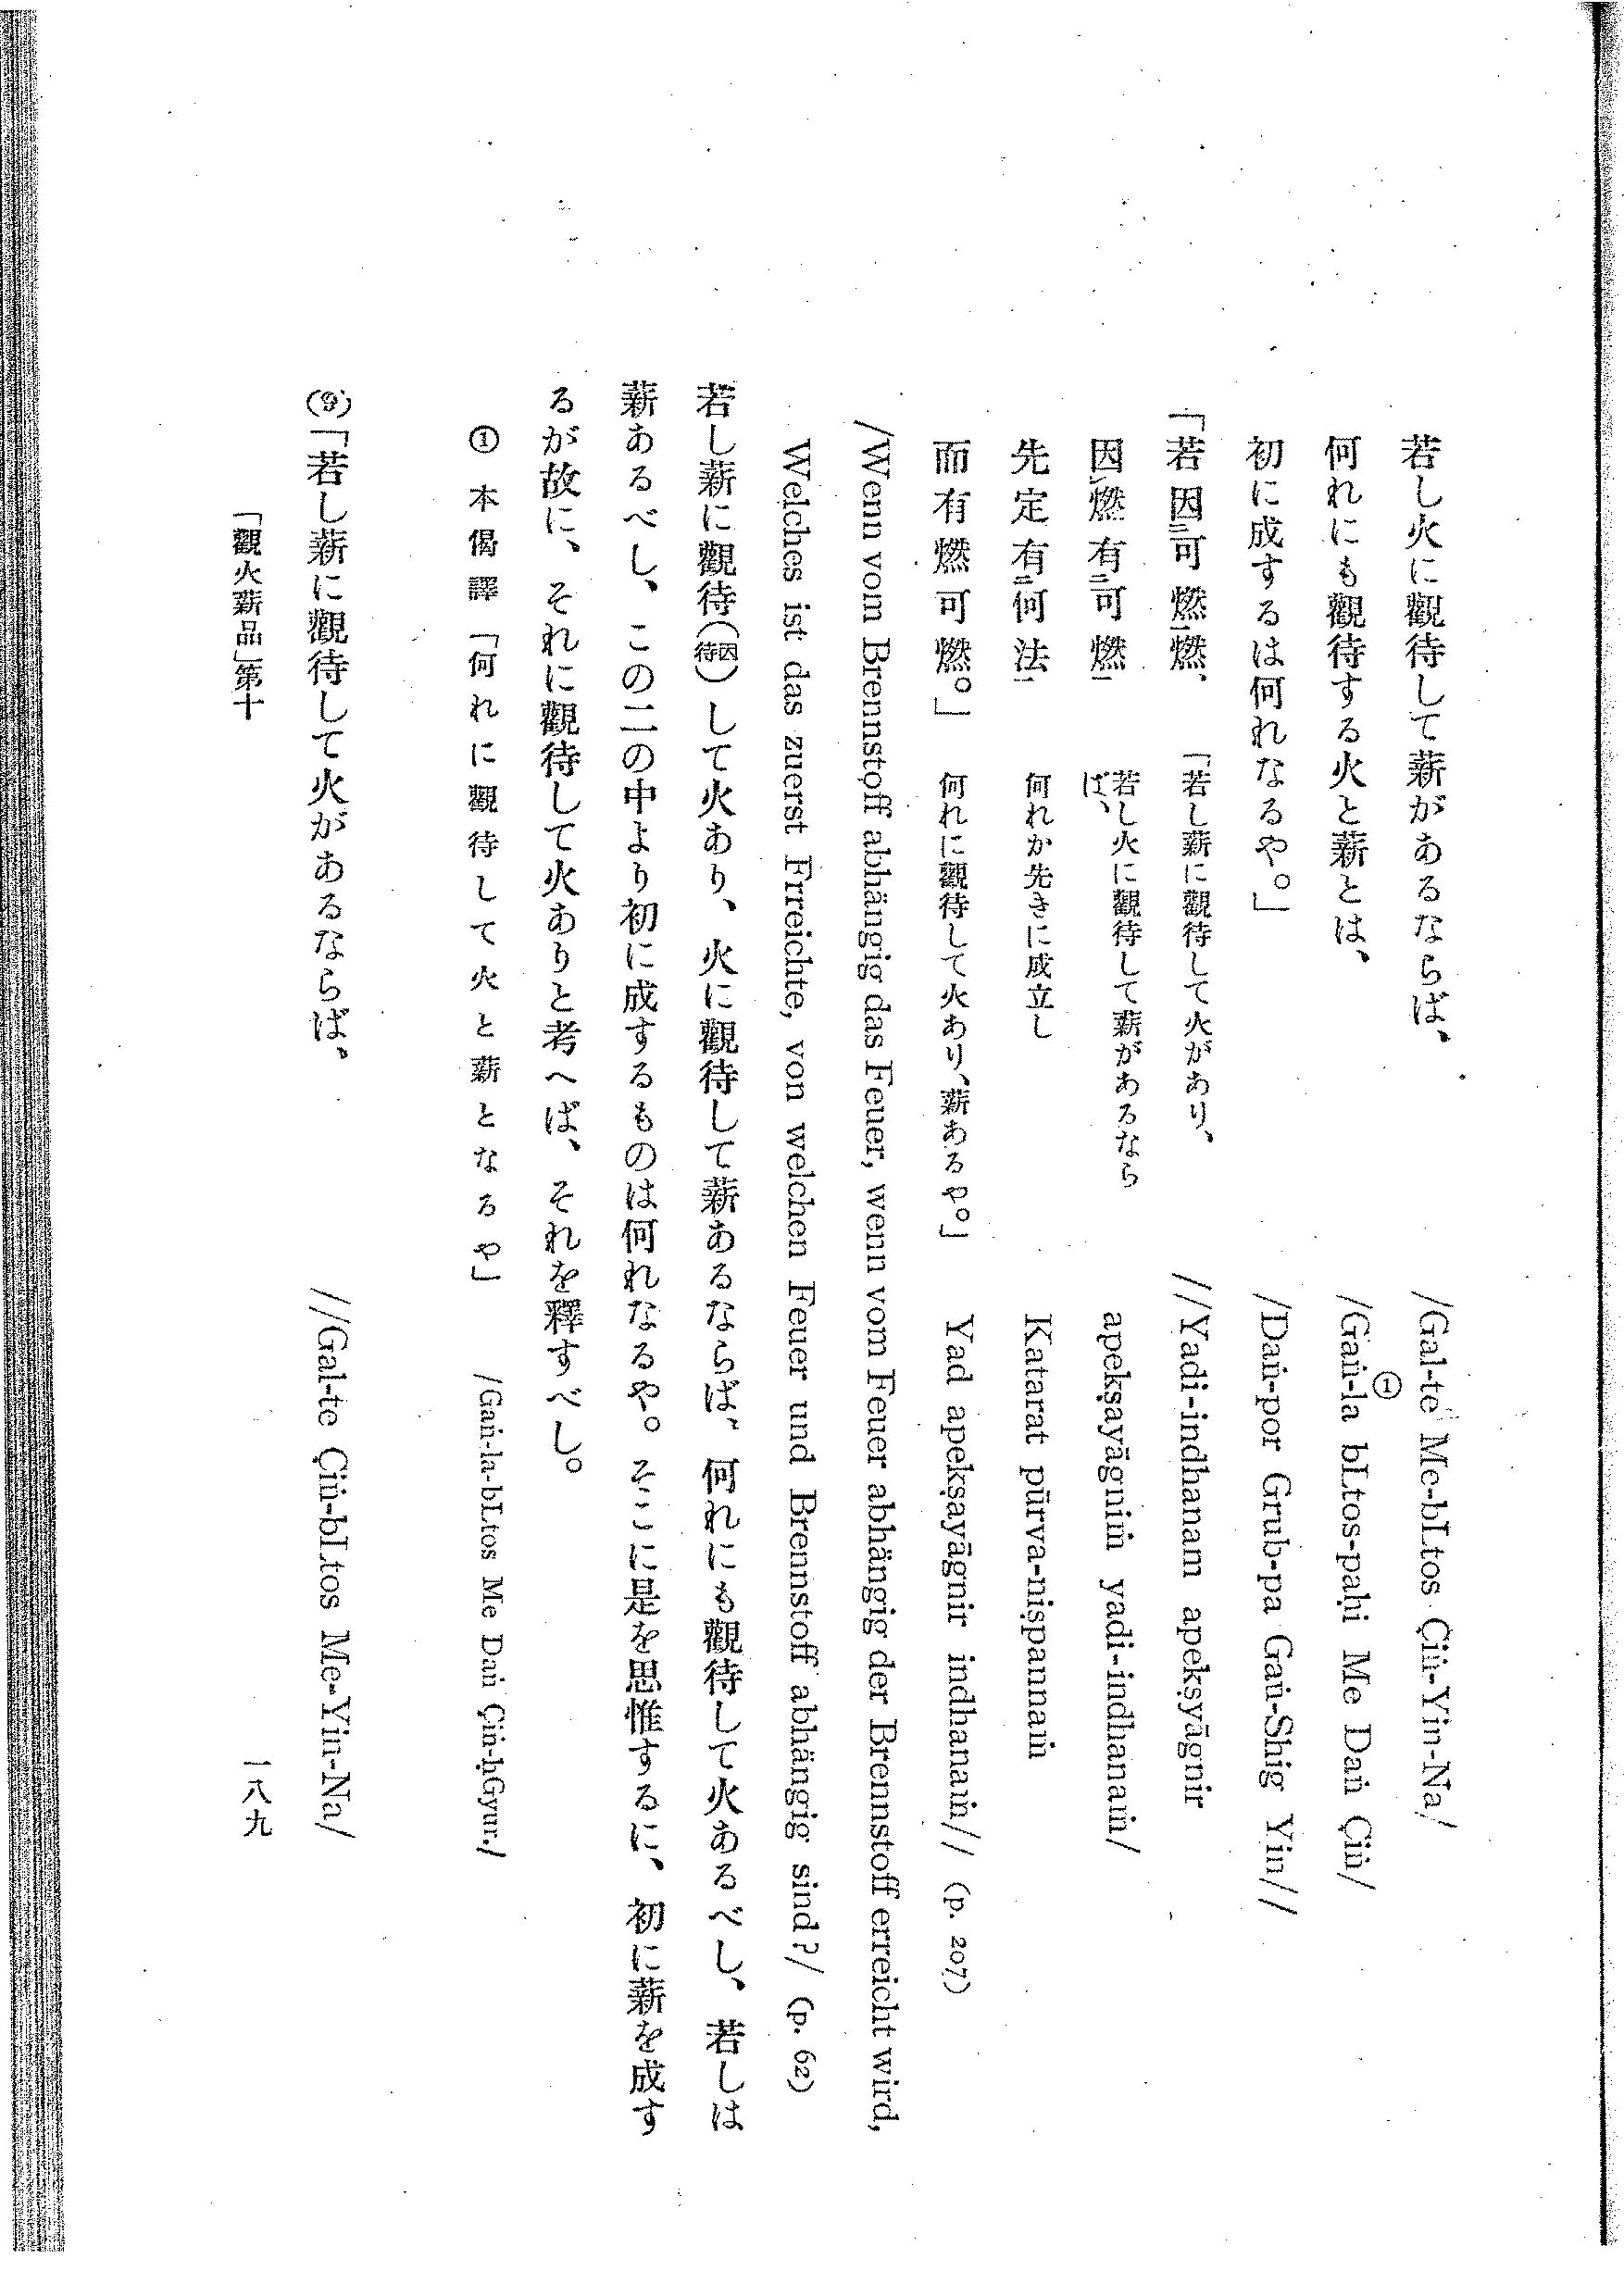 若し火に觀待して薪があるならば、 /Gal-te Me-bLtos Çiṅ-Yin-Na/
何れにも觀待する火と薪とは、 /Gaṅ-la① bLtos-paḥi Me Daṅ Çiṅ/
初に成するは何れなるや。」 /Daṅ-por Grub-pa Gaṅ-Shig Yin//
「若因二可燃一燃、 「若し薪に觀待して火があり、 //Yadi-indhanam apekṣyāgnir
因レ燃有二可燃一 若し火に觀待して薪があるならば、 apekṣayāgniṁ yadi-indhanaṁ/
先定有二何法一 何れか先きに成立し Katarat pūrva-niṣpannaṁ
而有燃可燃。」 何れに觀待して火あり、薪あるや。」 Yad apekṣayāgnir indhanaṁ// (p. 207)
/Wenn vom Brennstoff abhängig das Feuer, wenn vom Feuer abhängig der Brennstoff erreicht wird,
Welches ist das zuerst Frreichte, von welchen Feuer und Brennstoff abhängig sind?/ (p. 62)
若し薪に觀待(因待)して火あり、火に觀待して薪あるならば、何れにも觀待して火あるべし、若しは
薪あるべし、この二の中より初に成するものは何れなるや。そこに是を思惟するに、初に薪を成す
るが故に、それに觀待して火ありと考へば、それを釋すべし。
① 本偈譯「何れに觀待して火と薪となるや」 /Gaṅ-la-bLtos Me Daṅ Çiṅ-ḥGyur./
(9)「若し薪に觀待して火があるならば、 //Gal-te Çiṅ-bLtos Me-Yin-Na/
「觀火薪品」第十 一八九